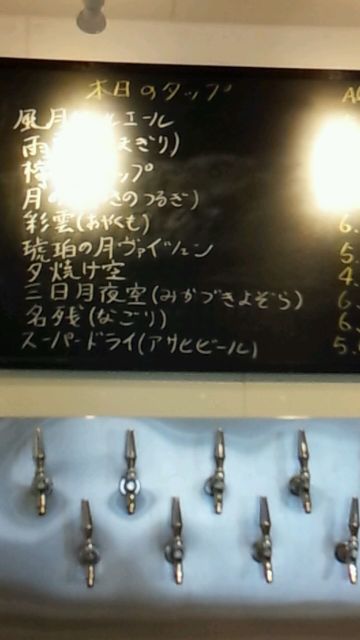 本日のタップ
風月 エール
雨 ぎり)
ップ
月の つるぎ)
彩雲(あやくも)
6.
琥珀の月ヴァイツェン
5.
夕焼け空
4.
三日月夜空(みかづきよぞら)
6.
名残(なごり)
6.
スーパードライ(アサヒビール)
5.